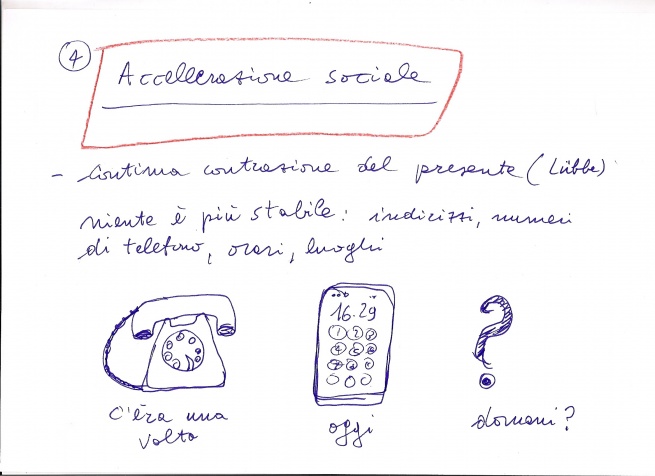 4
Accellerazione sociale
- Continua contrazione del presente (Lübbe)
niente è più stabile: indirizzi, numeri
di telefono, orari, luoghi
16.29
1 2 3
4 5 6
7 8 9
0
c'era una
volta
oggi
domani?